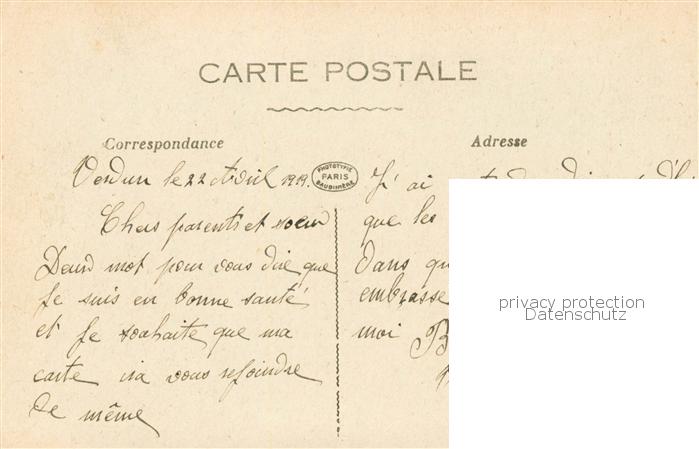 CARTE POSTALE
Correspondance
Adresse
PHOTOTYPIE
PARIS
BAUDINIÈRE
Verdun le 22 Avril 1919.
Chers parents et soeur
Deux mot pour vous dire que
je suis en bonne santé
et je souhaite que ma
carte ira vous rejoindre
de même
J'ai
que les
dans
embrasse
moi
privacy protection
Datenschutz